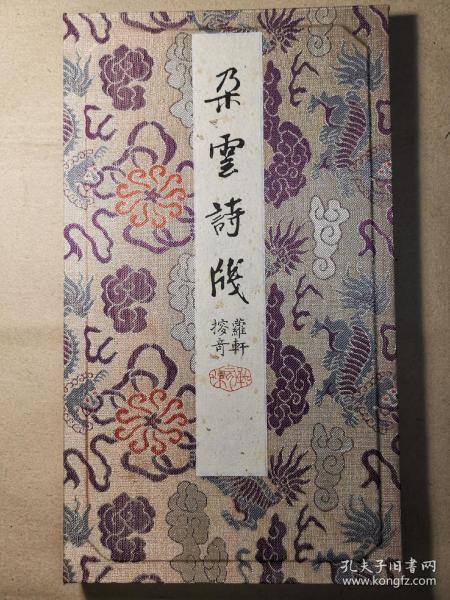 朵雲詩牋
蘿軒
搲奇
孔夫子旧书网
www.kongfz.com